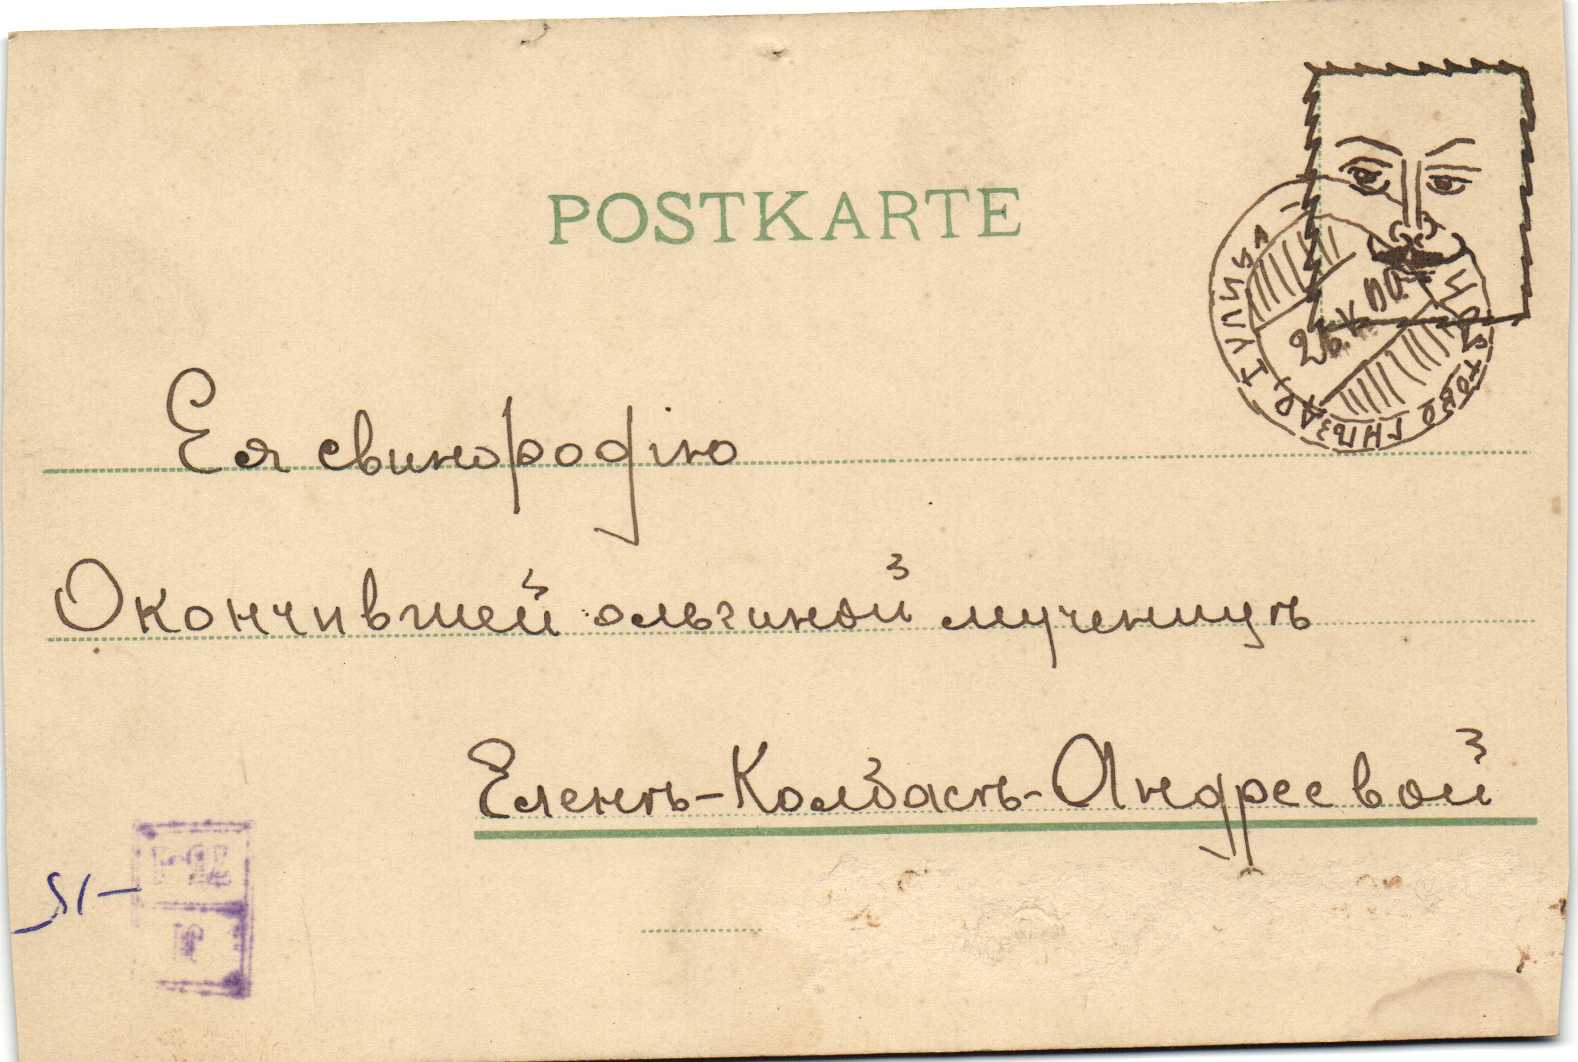 POSTKARTE
Ея свинородію
Окончившей ользиной мученицѣ
Еленѣ-Колбасѣ-Андреевой
26.X.00.
51-